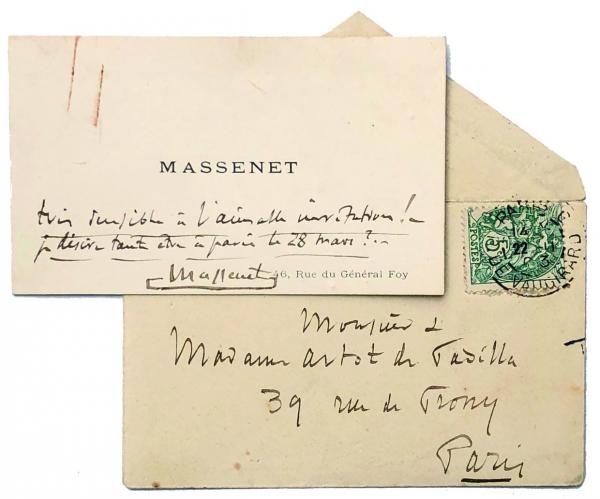 MASSENET
très sensible à l'aimable invitation! –
je désire tant être à paris le 28 mars?..
Massenet
46, Rue du Général Foy
POSTES
5
PARIS
14
22
VAUGIRARD
Monsieur &
Madame Artot de Padilla
39 rue de Prony
Paris